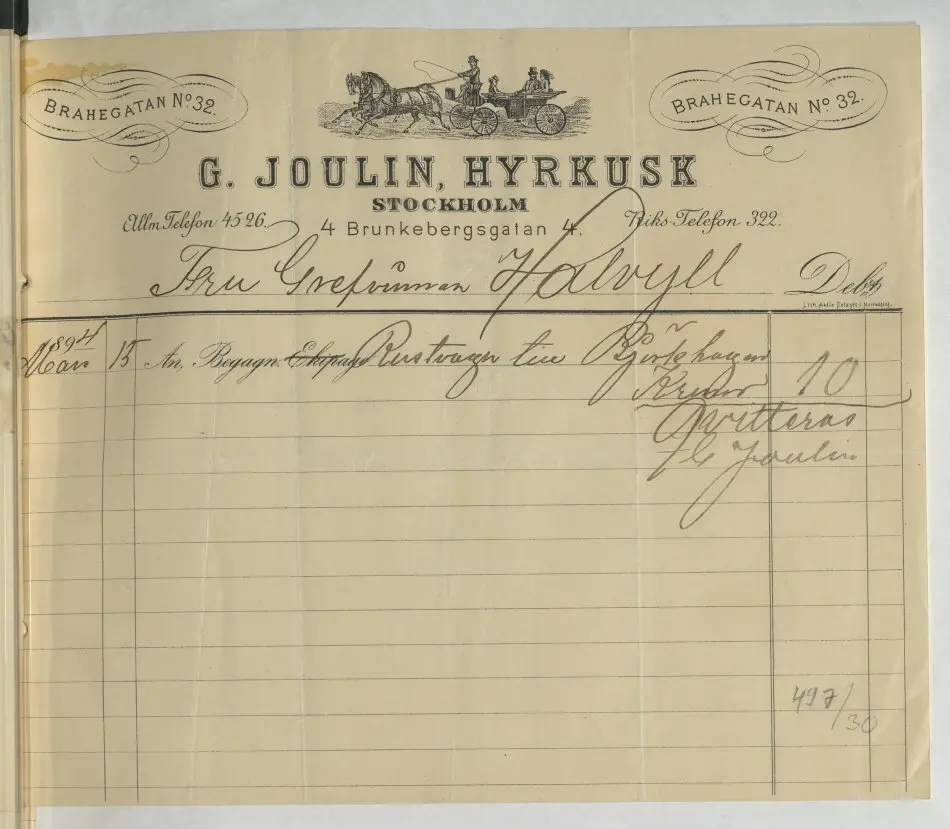 BRAHEGATAN No 32.
BRAHEGATAN No 32.
G. JOULIN, HYRKUSK
STOCKHOLM
Allm Telefon 4526.
Riks-Telefon 322.
4 Brunkebergsgatan 4.
Fru Grefvinnan Halvyll
Debet
Lith. Aktie Bolaget i Norrköping.
1894
Mars 15 An, Begagn. Ekipage Rustvagn till Björkhagen
Kronor 10
Qvitteras
G Joulin
497/30